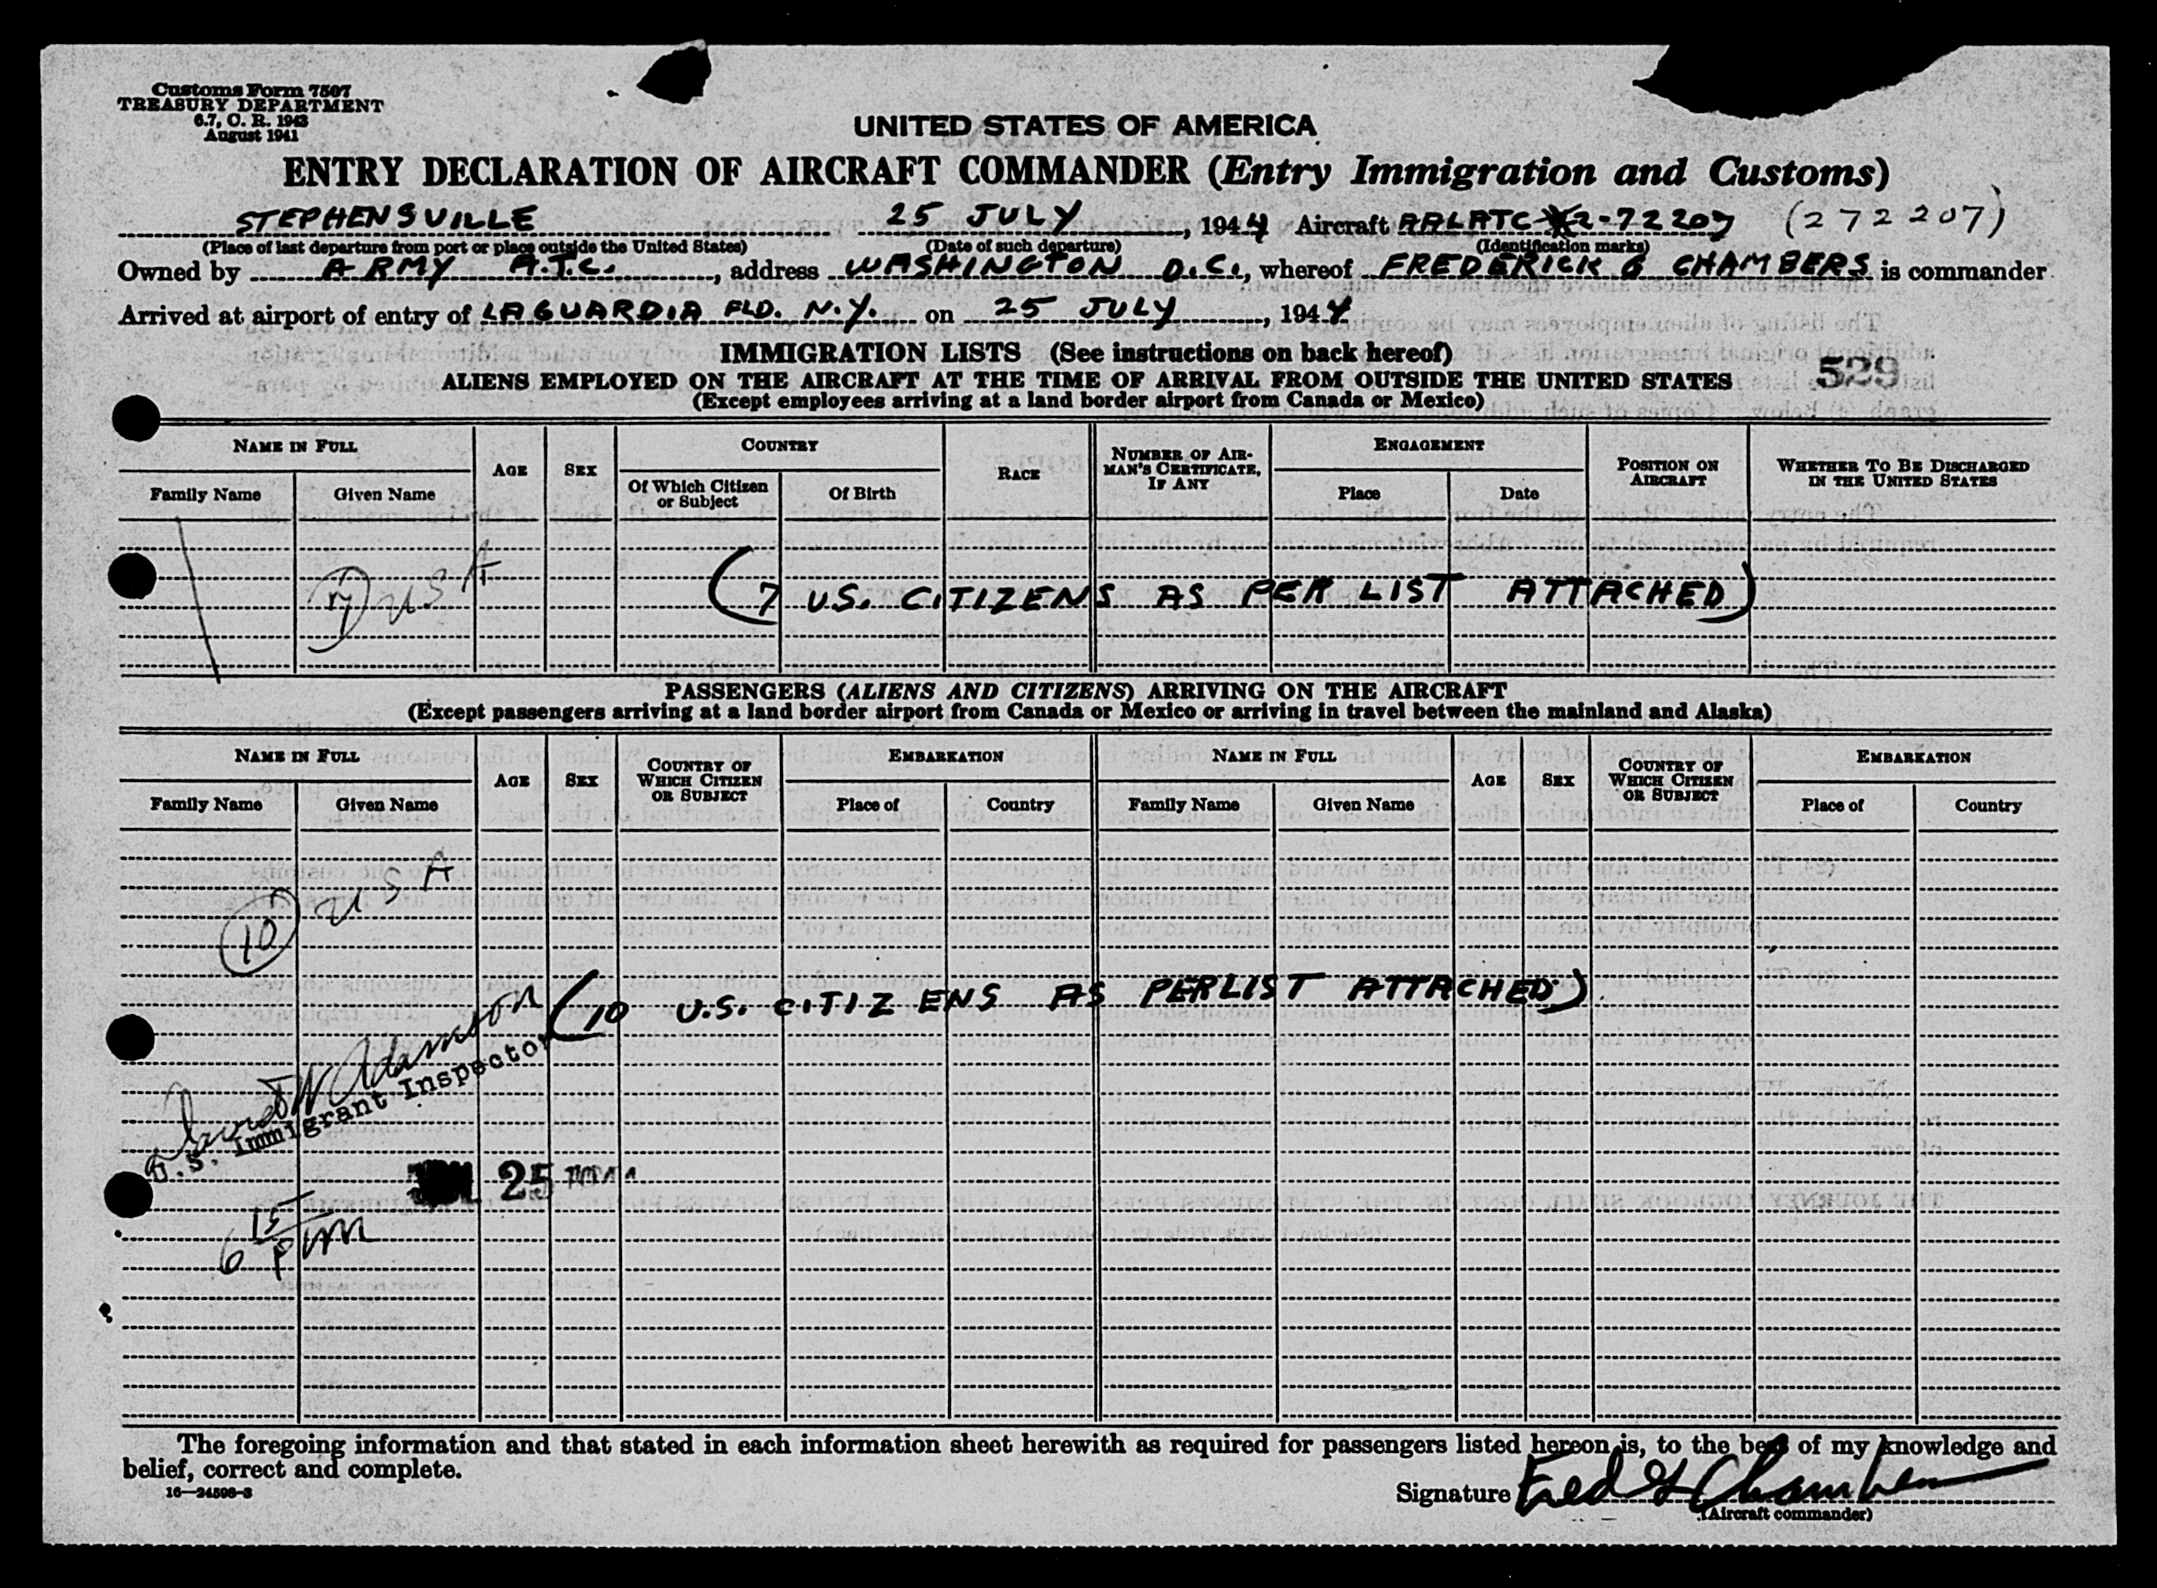 Customs Form 7507
TREASURY DEPARTMENT
6.7, C. R. 1943
August 1941
UNITED STATES OF AMERICA
ENTRY DECLARATION OF AIRCRAFT COMMANDER (Entry Immigration and Customs)
STEPHENSVILLE 25 JULY, 1944 Aircraft 2-72207 (272207)
(Place of last departure from port or place outside the United States) (Date of such departure) (Identification marks)
Owned by ARMY A.T.C., address WASHINGTON D.C., whereof FREDERICK G CHAMBERS is commander
Arrived at airport of entry of LAGUARDIA FLD. N.Y. on 25 JULY, 1944
IMMIGRATION LISTS (See instructions on back hereof)
ALIENS EMPLOYED ON THE AIRCRAFT AT THE TIME OF ARRIVAL FROM OUTSIDE THE UNITED STATES 529
(Except employees arriving at a land border airport from Canada or Mexico)
NAME IN FULL AGE SEX COUNTRY RACE NUMBER OF AIRMAN'S CERTIFICATE, IF ANY ENGAGEMENT POSITION ON AIRCRAFT WHETHER TO BE DISCHARGED IN THE UNITED STATES
Family Name Given Name Of Which Citizen or Subject Of Birth Place Date
7 USA (7 U.S. CITIZENS AS PER LIST ATTACHED)
PASSENGERS (ALIENS AND CITIZENS) ARRIVING ON THE AIRCRAFT
(Except passengers arriving at a land border airport from Canada or Mexico or arriving in travel between the mainland and Alaska)
NAME IN FULL AGE SEX COUNTRY OF WHICH CITIZEN OR SUBJECT EMBARKATION NAME IN FULL AGE SEX COUNTRY OF WHICH CITIZEN OR SUBJECT EMBARKATION
Family Name Given Name Place of Country Family Name Given Name Place of Country
10 USA
(10 U.S. CITIZENS AS PER LIST ATTACHED)
W Adamson
U.S. Immigrant Inspector
25
6 15 pm
The foregoing information and that stated in each information sheet herewith as required for passengers listed hereon is, to the best of my knowledge and
belief, correct and complete.
16—24598-3
Signature Fred G Chambers
(Aircraft commander)